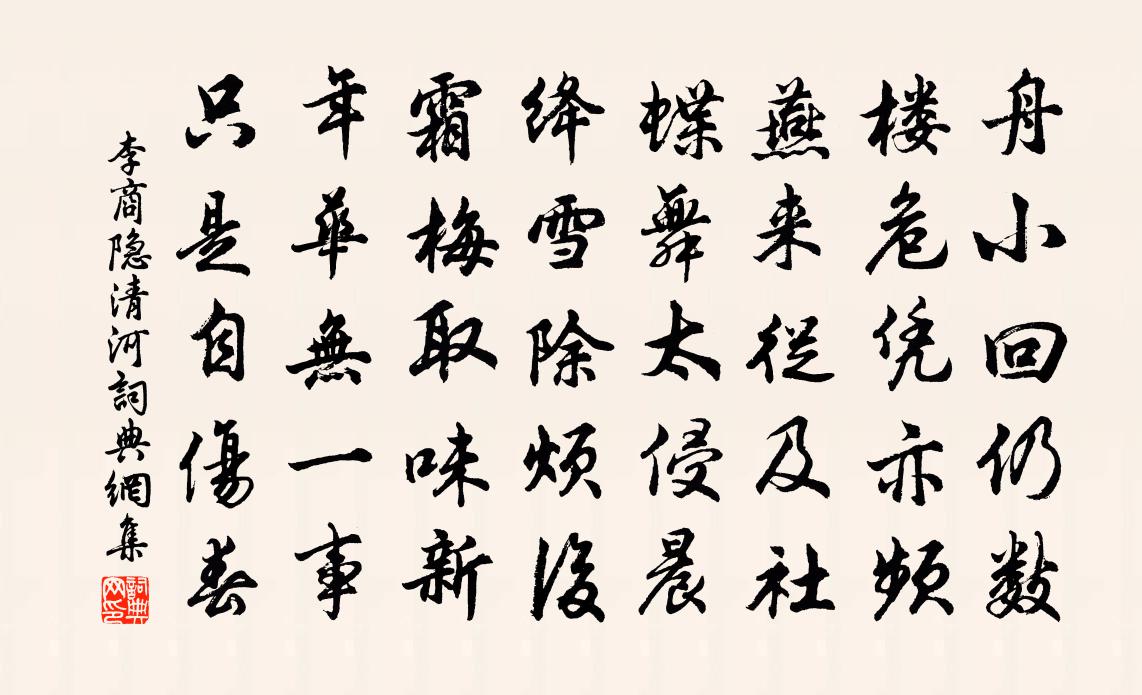 舟小回仍数
楼危凭亦频
燕来从及社
蝶舞太侵晨
绛雪除烦后
霜梅取味新
年华無一事
只是自傷春
李商隐清河詞典網集
詞典网印